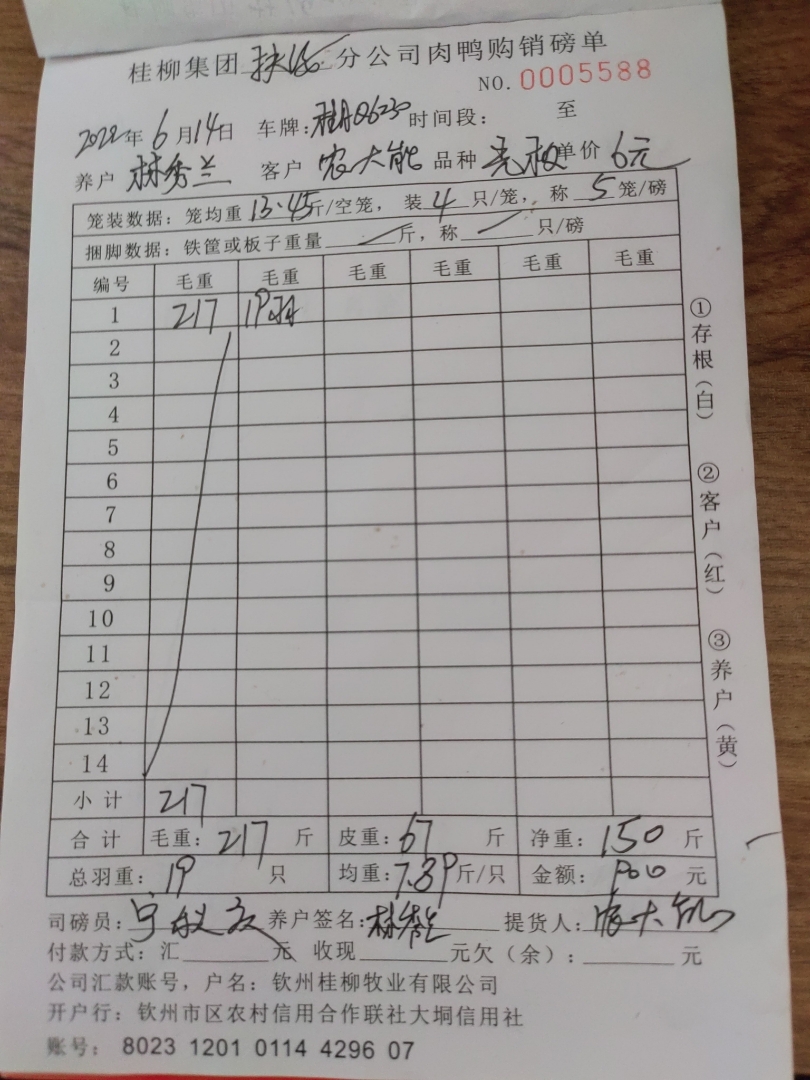 桂柳集团 分公司肉鸭购销磅单
NO. 0005588
2022年6月14日 车牌: 时间段: 至
养户 林秀兰 客户 农大能 品种 单价 6元
笼装数据:笼均重13.45斤/空笼,装4只/笼,称5笼/磅
捆脚数据:铁筐或板子重量 斤,称 只/磅
编号 毛重 毛重 毛重 毛重 毛重 毛重
1 217 19羽
2
3
4
5
6
7
8
9
10
11
12
13
14
小计 217
合计 毛重:217 斤 皮重:67 斤 净重:150 斤
总羽重:19 只 均重:7.89斤/只 金额:900 元
司磅员: 养户签名:林秀兰 提货人:农大能
付款方式:汇 元 收现 元欠(余): 元
公司汇款账号,户名:钦州桂柳牧业有限公司
开户行:钦州市区农村信用合作联社大垌信用社
账号:8023 1201 0114 4296 07
①存根(白)
②客户(红)
③养户(黄)